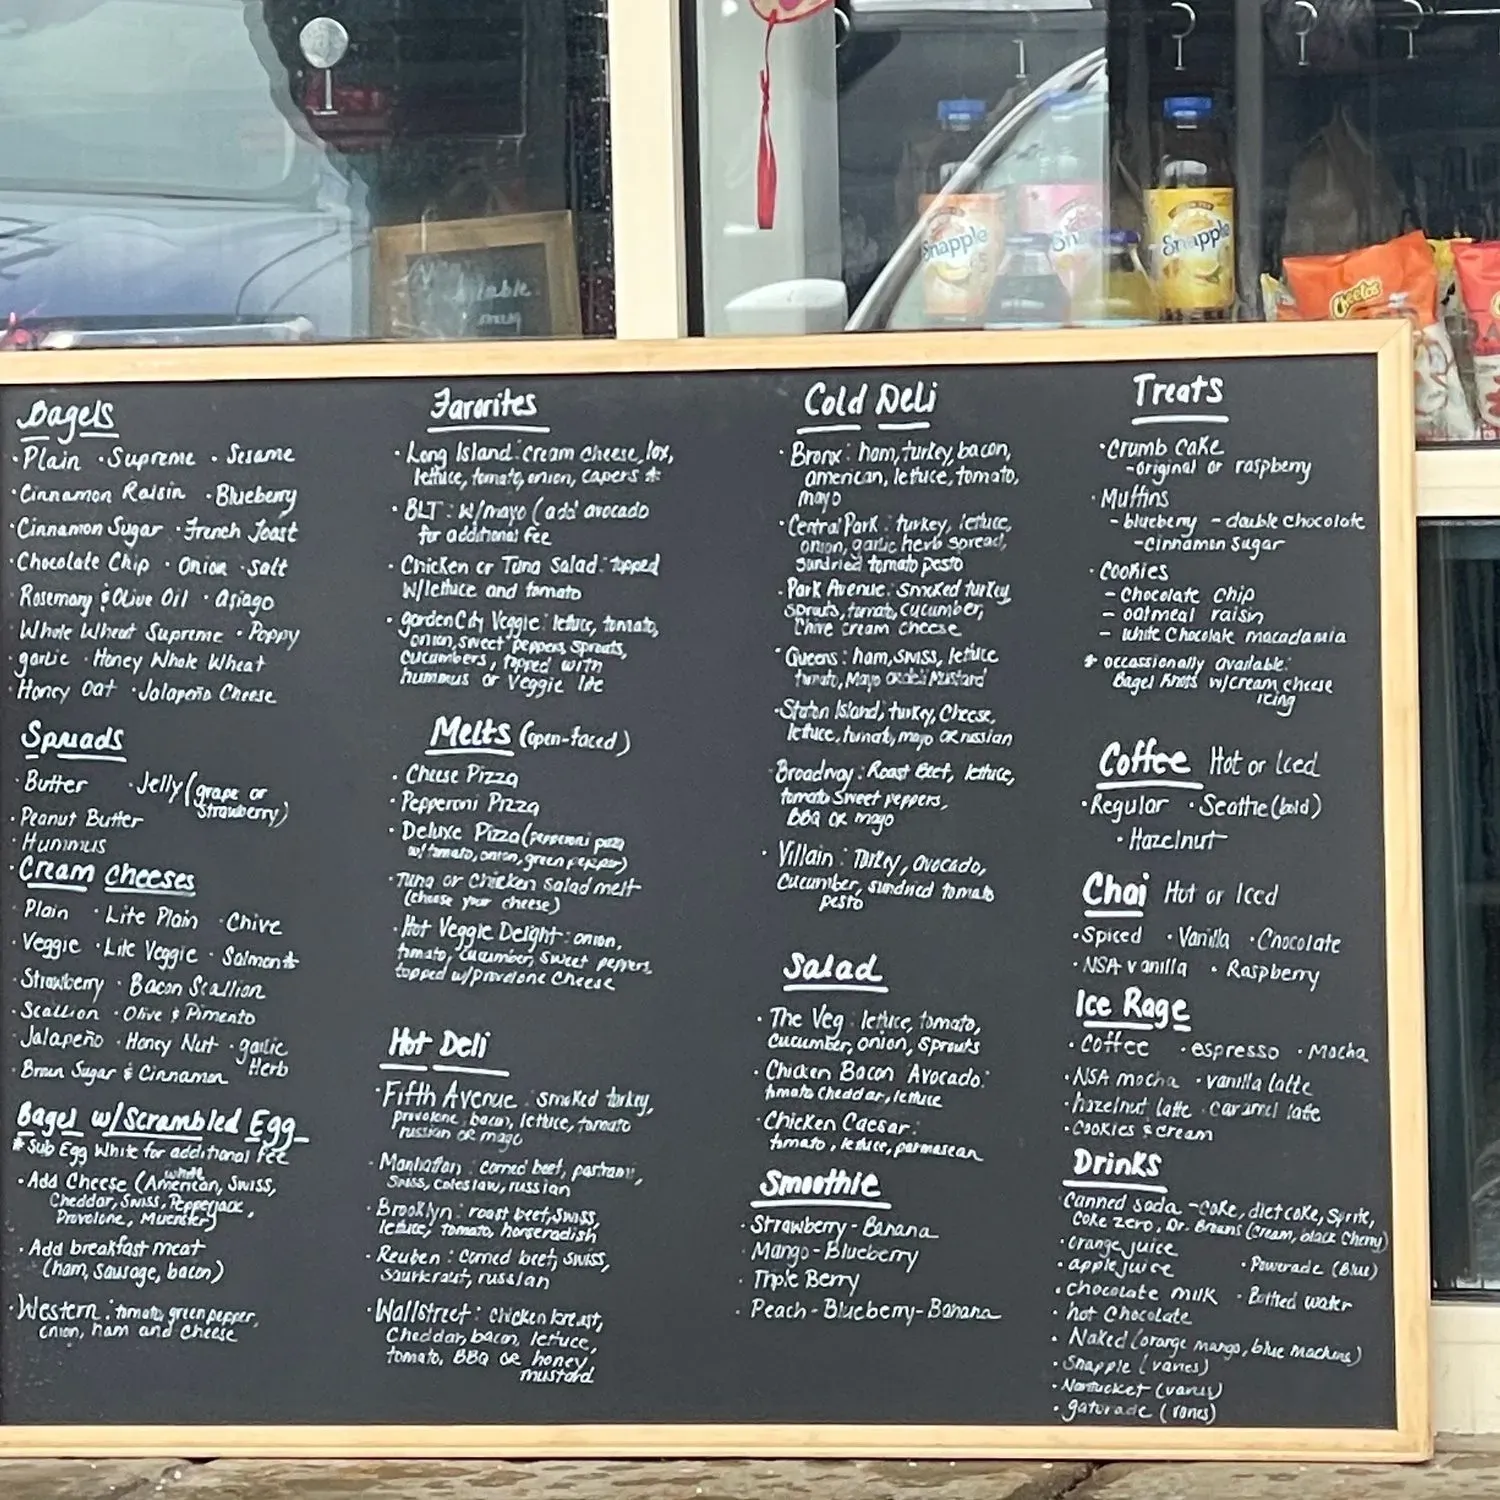 Snapple
Snapple
Cheetos
Bagels
·Plain ·Supreme ·Sesame
·Cinnamon Raisin ·Blueberry
·Cinnamon Sugar ·French Toast
·Chocolate Chip ·Onion ·Salt
·Rosemary & Olive Oil ·Asiago
·Whole Wheat Supreme ·Poppy
·garlic ·Honey Whole Wheat
·Honey Oat ·Jalapeño Cheese
Spreads
·Butter ·Jelly (grape or
strawberry)
·Peanut Butter
·Hummus
Cream cheeses
·Plain ·Lite Plain ·Chive
·Veggie ·Lite Veggie ·Salmon*
·Strawberry ·Bacon Scallion
·Scallion ·Olive & Pimento
·Jalapeño ·Honey Nut ·garlic
Herb
·Brown Sugar & Cinnamon
Bagel w/Scrambled Egg
*Sub Egg White for additional fee
·Add Cheese (white American, Swiss,
Cheddar, Swiss, Pepperjack,
Provolone, Muenster)
·Add breakfast meat
(ham, sausage, bacon)
·Western: tomato, green pepper,
onion, ham and cheese
Favorites
·Long Island: cream cheese, lox,
lettuce, tomato, onion, capers *
·BLT: w/mayo (add avocado
for additional fee
·Chicken or Tuna Salad: topped
w/lettuce and tomato
·garden City Veggie: lettuce, tomato,
onion, sweet peppers, sprouts,
cucumbers, topped with
hummus or Veggie lite
Melts (open-faced)
·Cheese Pizza
·Pepperoni Pizza
·Deluxe Pizza (pepperoni pizza
w/tomato, onion, green pepper)
·Tuna or Chicken Salad melt
(choose your cheese)
·Hot Veggie Delight: onion,
tomato, cucumber, sweet peppers,
topped w/provolone cheese
Hot Deli
·Fifth Avenue: smoked turkey,
provolone, bacon, lettuce, tomato
russian or mayo
·Manhattan: corned beef, pastrami,
Swiss, coleslaw, russian
·Brooklyn: roast beef, swiss,
lettuce, tomato, horseradish
·Reuben: Corned beef, swiss,
Saurkraut, russian
·Wallstreet: chicken breast,
Cheddar, bacon, lettuce,
tomato, BBQ or honey
mustard
Cold Deli
·Bronx: ham, turkey, bacon,
american, lettuce, tomato,
mayo
·Central Park: turkey, lettuce,
onion, garlic herb spread,
sundried tomato pesto
·Park Avenue: smoked turkey,
sprouts, tomato, cucumber,
Chive cream cheese
·Queens: ham, swiss, lettuce
tomato, Mayo or deli Mustard
·Staten Island, turkey, Cheese,
lettuce, tomato, mayo or russian
·Broadway: Roast Beef, lettuce,
tomato Sweet peppers,
BBQ or mayo
·Villain: Turkey, avocado,
Cucumber, sundried tomato
pesto
Salad
·The Veg: lettuce, tomato,
cucumber, onion, sprouts
·Chicken Bacon Avocado:
tomato cheddar, lettuce
·Chicken Caesar:
tomato, lettuce, parmasean
Smoothie
·Strawberry-Banana
·Mango-Blueberry
·Triple Berry
·Peach-Blueberry-Banana
Treats
·Crumb Cake
-original or raspberry
·Muffins
-blueberry -double chocolate
-cinnamon sugar
·Cookies
-chocolate chip
-oatmeal raisin
-white Chocolate macadamia
* occassionally available:
Bagel Knots w/cream cheese
icing
Coffee Hot or Iced
·Regular ·Seattle (bold)
·Hazelnut
Chai Hot or Iced
·Spiced ·Vanilla ·Chocolate
·NSA vanilla ·Raspberry
Ice Rage
·coffee ·espresso ·Mocha
·NSA mocha ·vanilla latte
·hazelnut latte ·caramel latte
·cookies & cream
Drinks
·Canned soda -coke, diet coke, Sprite,
coke zero, Dr. Browns (Cream, black Cherry)
·orange juice
·apple juice ·Powerade (Blue)
·chocolate milk ·Bottled water
·hot Chocolate
·Naked (orange mango, blue machine)
·Snapple (varies)
·Nantucket (varies)
·gatorade (varies)